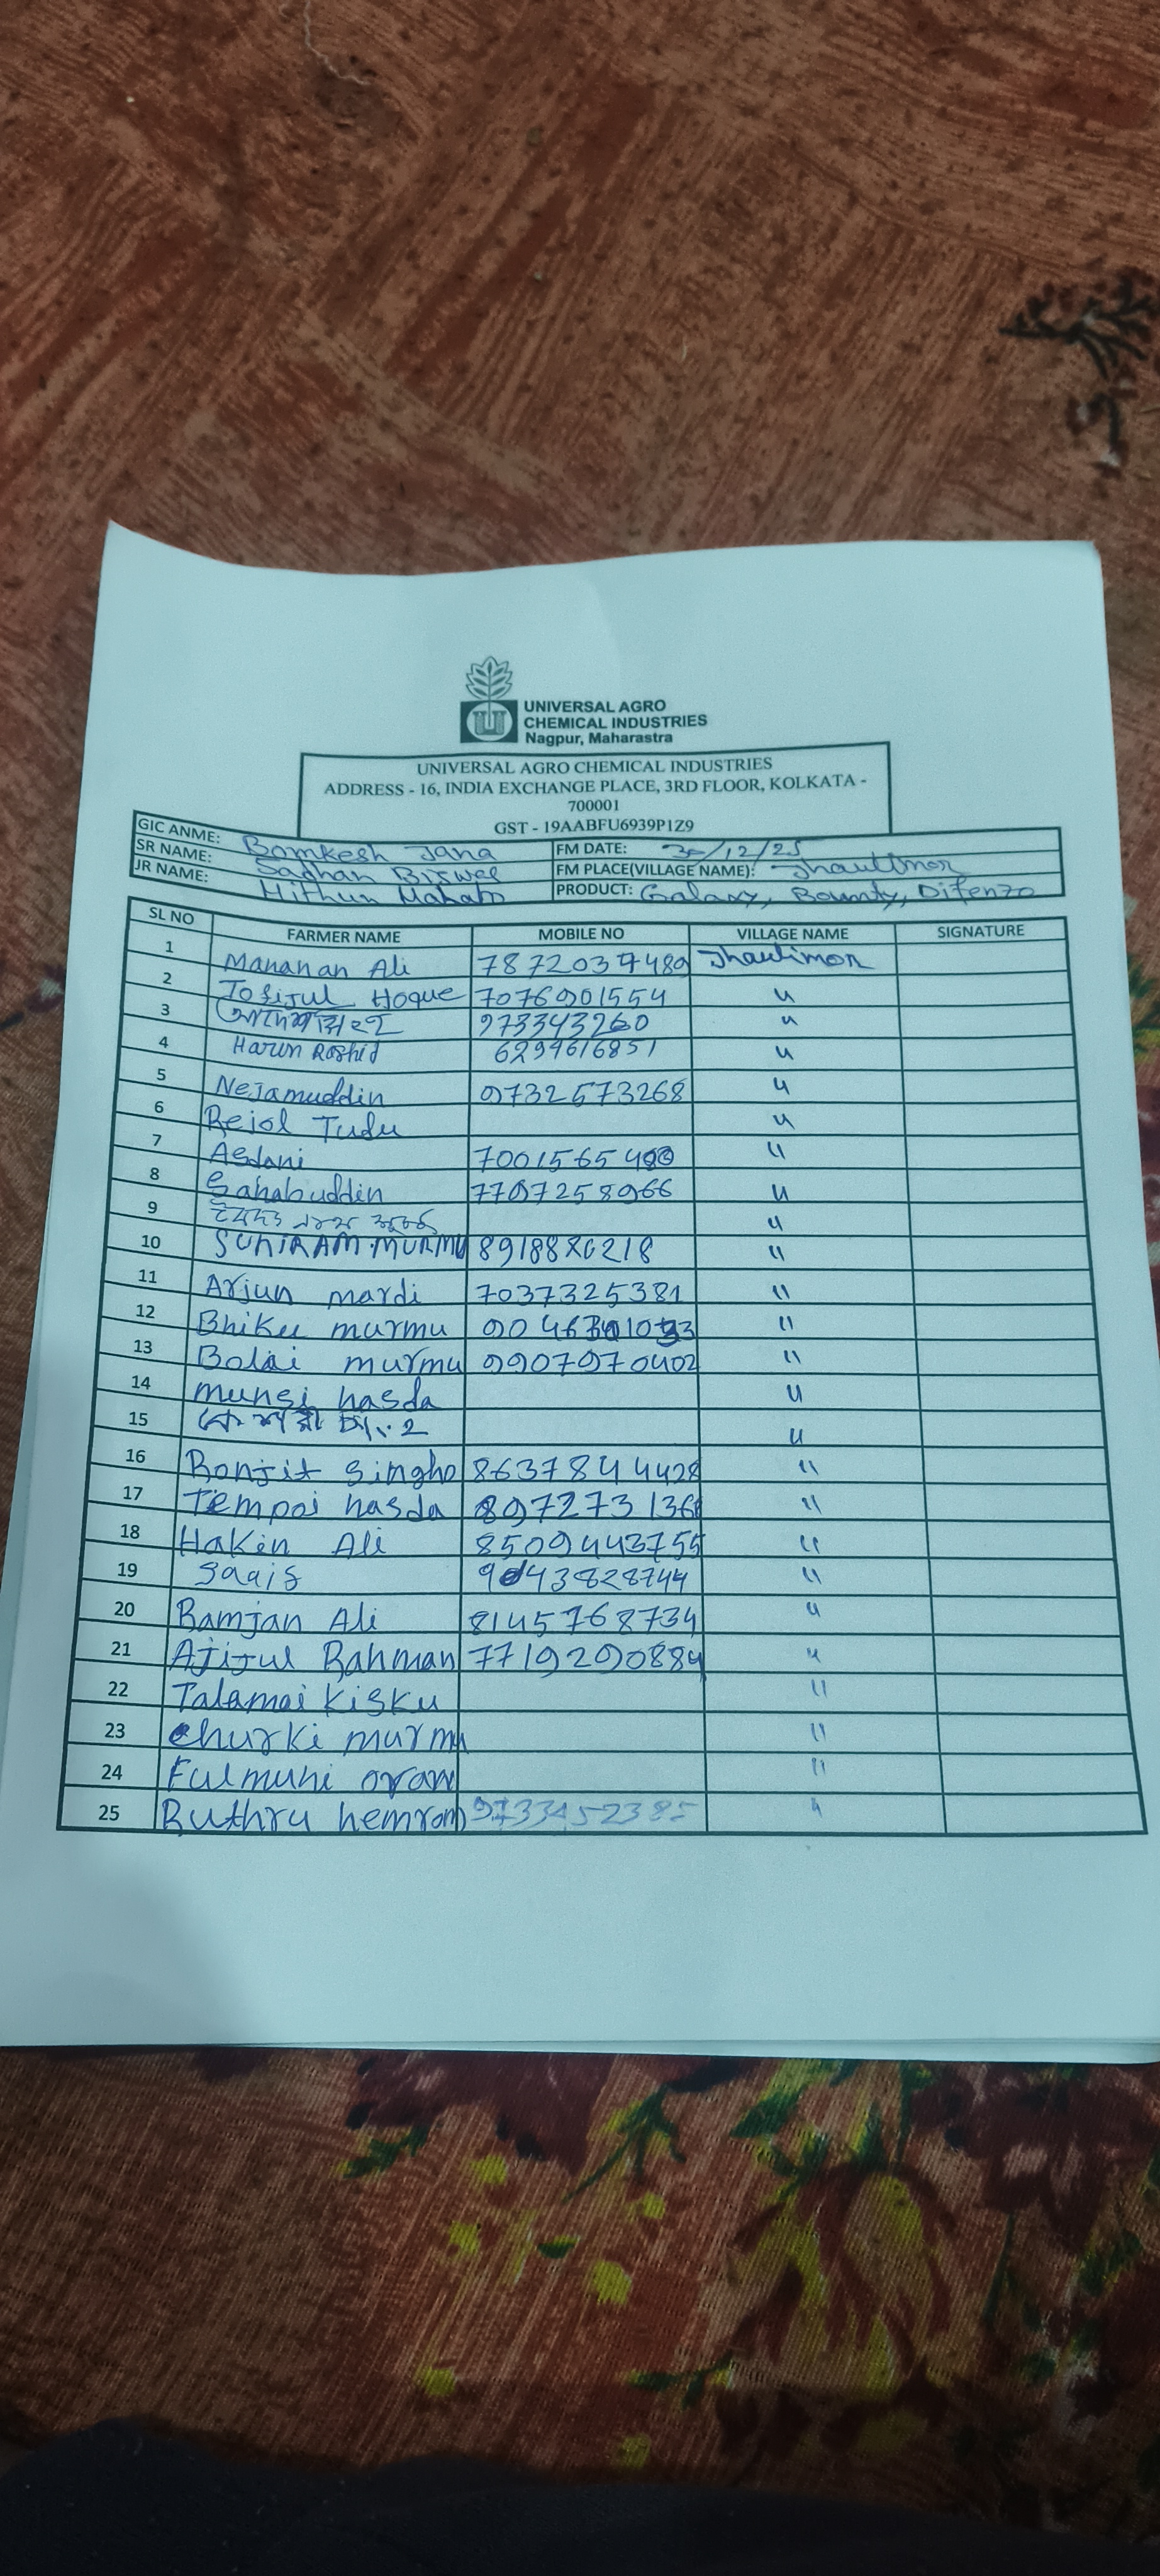 UNIVERSAL AGRO
CHEMICAL INDUSTRIES
Nagpur, Maharastra
UNIVERSAL AGRO CHEMICAL INDUSTRIES
ADDRESS - 16, INDIA EXCHANGE PLACE, 3RD FLOOR, KOLKATA -
700001
GST - 19AABFU6939P1Z9
GIC ANME: Bomkesh Jana FM DATE: 30/12/25
SR NAME: Sadhan Biswas FM PLACE(VILLAGE NAME): Jhaulimor
JR NAME: Mithun Mahato PRODUCT: Galaxy, Bounty, Difenzo
SL NO FARMER NAME MOBILE NO VILLAGE NAME SIGNATURE
1 Mananan Ali 7872037489 Jhaulimor
2 Tofijul Hoque 7076901554 "
3 973343260 "
4 Harun Roshid 6294616851 "
5 Nejamuddin 9732573268 "
6 Rejol Tudu "
7 Asdani 7001565 "
8 Sahabuddin 7797258966 "
9 "
10 SUNIRAM MURMU "
11 Arjun mardi 7037325381 "
12 Bhiku murmu "
13 Bolai murmu 9907970402 "
14 munsi hasda "
15 "
16 Ronjit Singho 8637844428 "
17 Tempoi hasda "
18 Hakin Ali 8509443755 "
19 "
20 Ramjan Ali 8145768734 "
21 Ajijul Rahman 7719290884 "
22 Talamai Kisku "
23 churki murmu "
24 Fulmuni oraw "
25 Buthru hemrom 9733452385 "